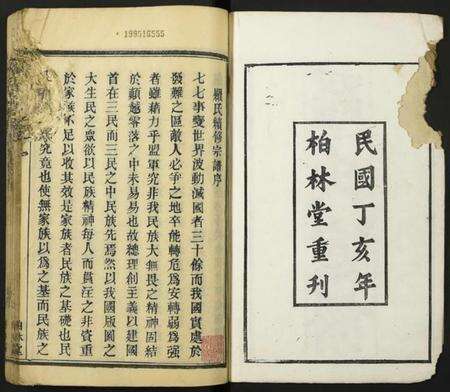 民國丁亥年
柏林堂重刊
199516555
顧氏續修宗譜序
七七事變世界波動滅國者三十餘而我國實處於
發難之區敵人必爭之地卒能轉危為安轉弱爲強
者雖藉力乎盟軍究非我民族大無畏之精神固結
於顛越零落之中未易易也故總理創主義以建國
首在三民而三民之中民族先焉然以我國版圖之
大生民之眾欲以民族精神每人而貫注之非資重
於家族不足以收其效是家族者民族之基礎也民
究竟也使無家族以爲之基而民族之